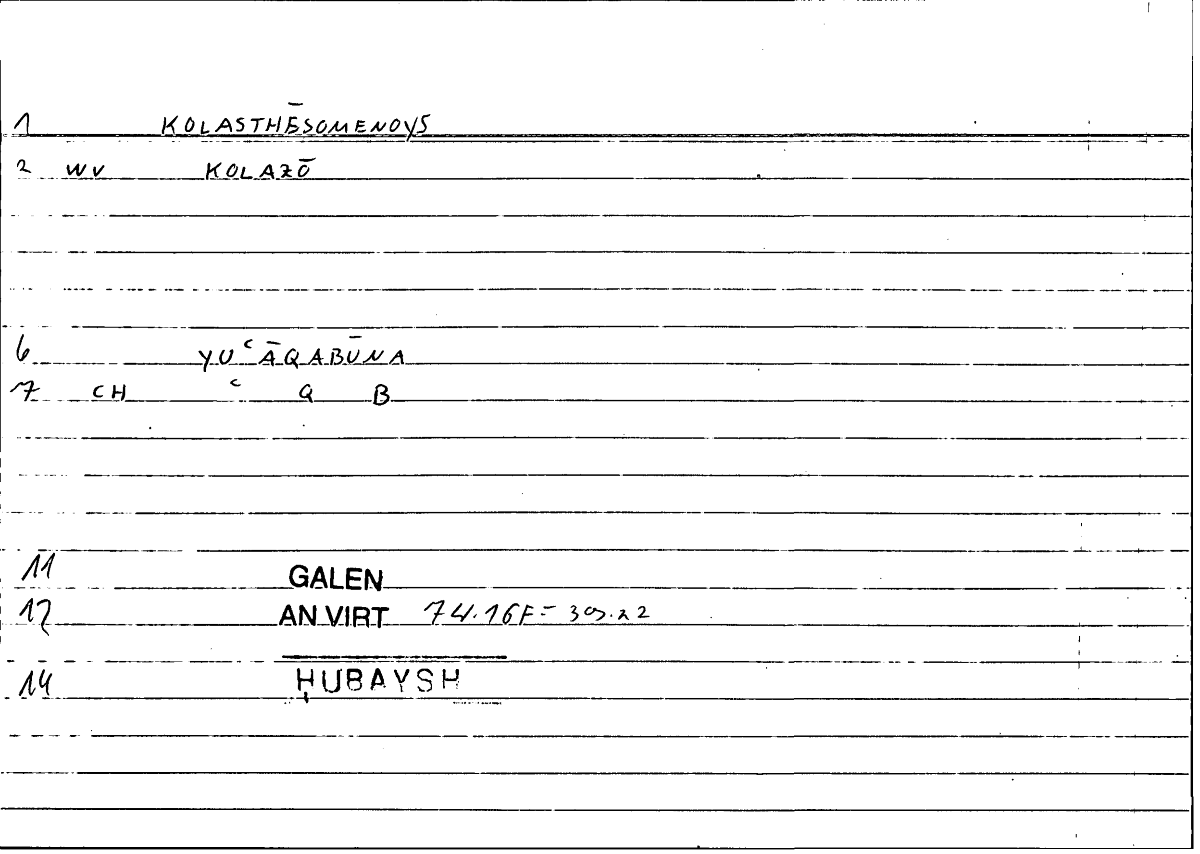 1 KOLASTHĒSOMENOYS
2 WV KOLAZŌ
6 YUʿĀQABŪNA
7 CH ʿ Q B
11 GALEN
12 AN VIRT 74.16F =
14 ḤUBAYSH